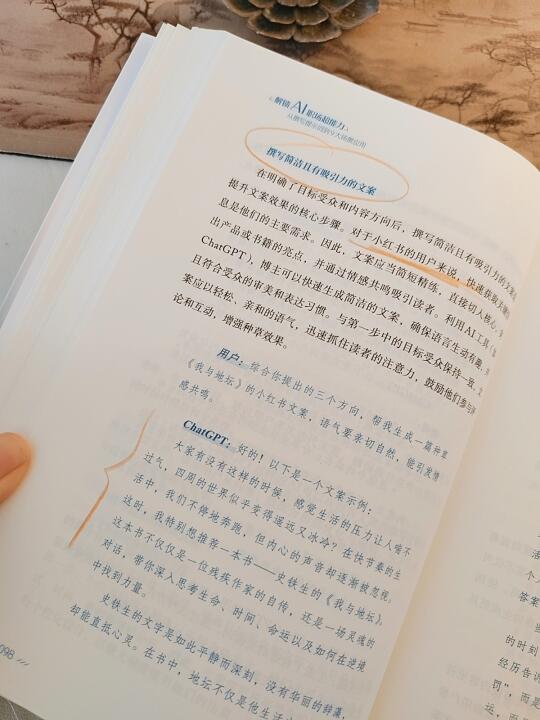 解锁AI职场超能力
从撰写提示词到9大场景应用
撰写简洁且有吸引力的文案
在明确了目标受众和内容方向后，撰写简洁且有吸引力的文案是
提升文案效果的核心步骤。对于小红书的用户来说，快速获取
息是他们的主要需求。因此，文案应当简短精练，直接切入核心，
出产品或书籍的亮点，并通过情感共鸣吸引读者。利用AI工具（如
ChatGPT），博主可以快速生成简洁的文案，确保语言生动有趣，并
且符合受众的审美和表达习惯。与第一步中的目标受众保持一致，文
案应以轻松、亲和的语气，迅速抓住读者的注意力，鼓励他们参与评
论和互动，增强种草效果。
用户：综合你提出的三个方向，帮我生成一篇种草
《我与地坛》的小红书文案，语气要亲切自然，能引发情
感共鸣。
ChatGPT：好的！以下是一个文案示例：
大家有没有这样的时候，感觉生活的压力让人喘不
过气，四周的世界似乎变得遥远又冰冷？在快节奏的生
活中，我们不停地奔跑，但内心的声音却逐渐被忽视。
这时，我特别想推荐一本书——史铁生的《我与地坛》。
这本书不仅仅是一位残疾作家的自传，还是一场灵魂的
对话，带你深入思考生命、时间、命运以及如何在逆境
中找到力量。
史铁生的文字是如此平静而深刻，没有华丽的辞藻，
却能直抵心灵。在书中，地坛不仅是他生活
098
活
个人
答案
当
的时刻
经历告诉
罚”，而是
运，